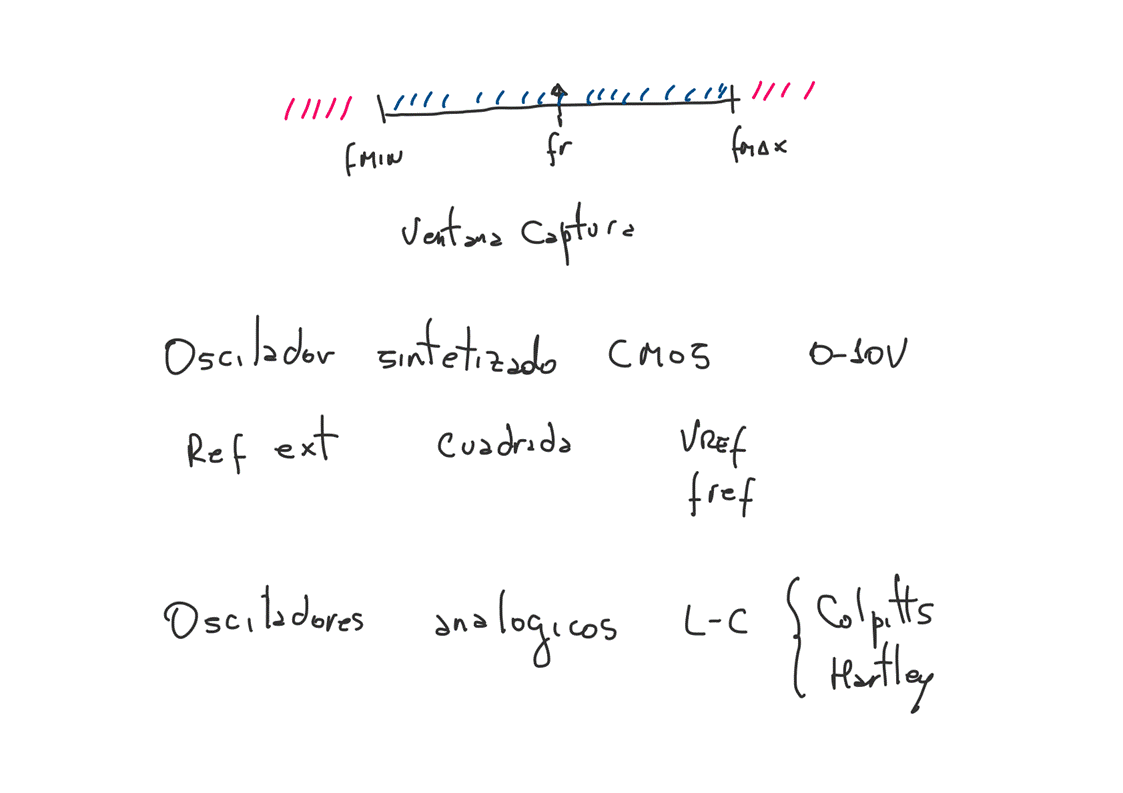 fMIN fr fMAX
Ventana Captura
Oscilador sintetizado CMOS 0-10V
Ref ext Cuadrada VREf
fref
Osciladores analogicos L-C { Colpitts
Hartley